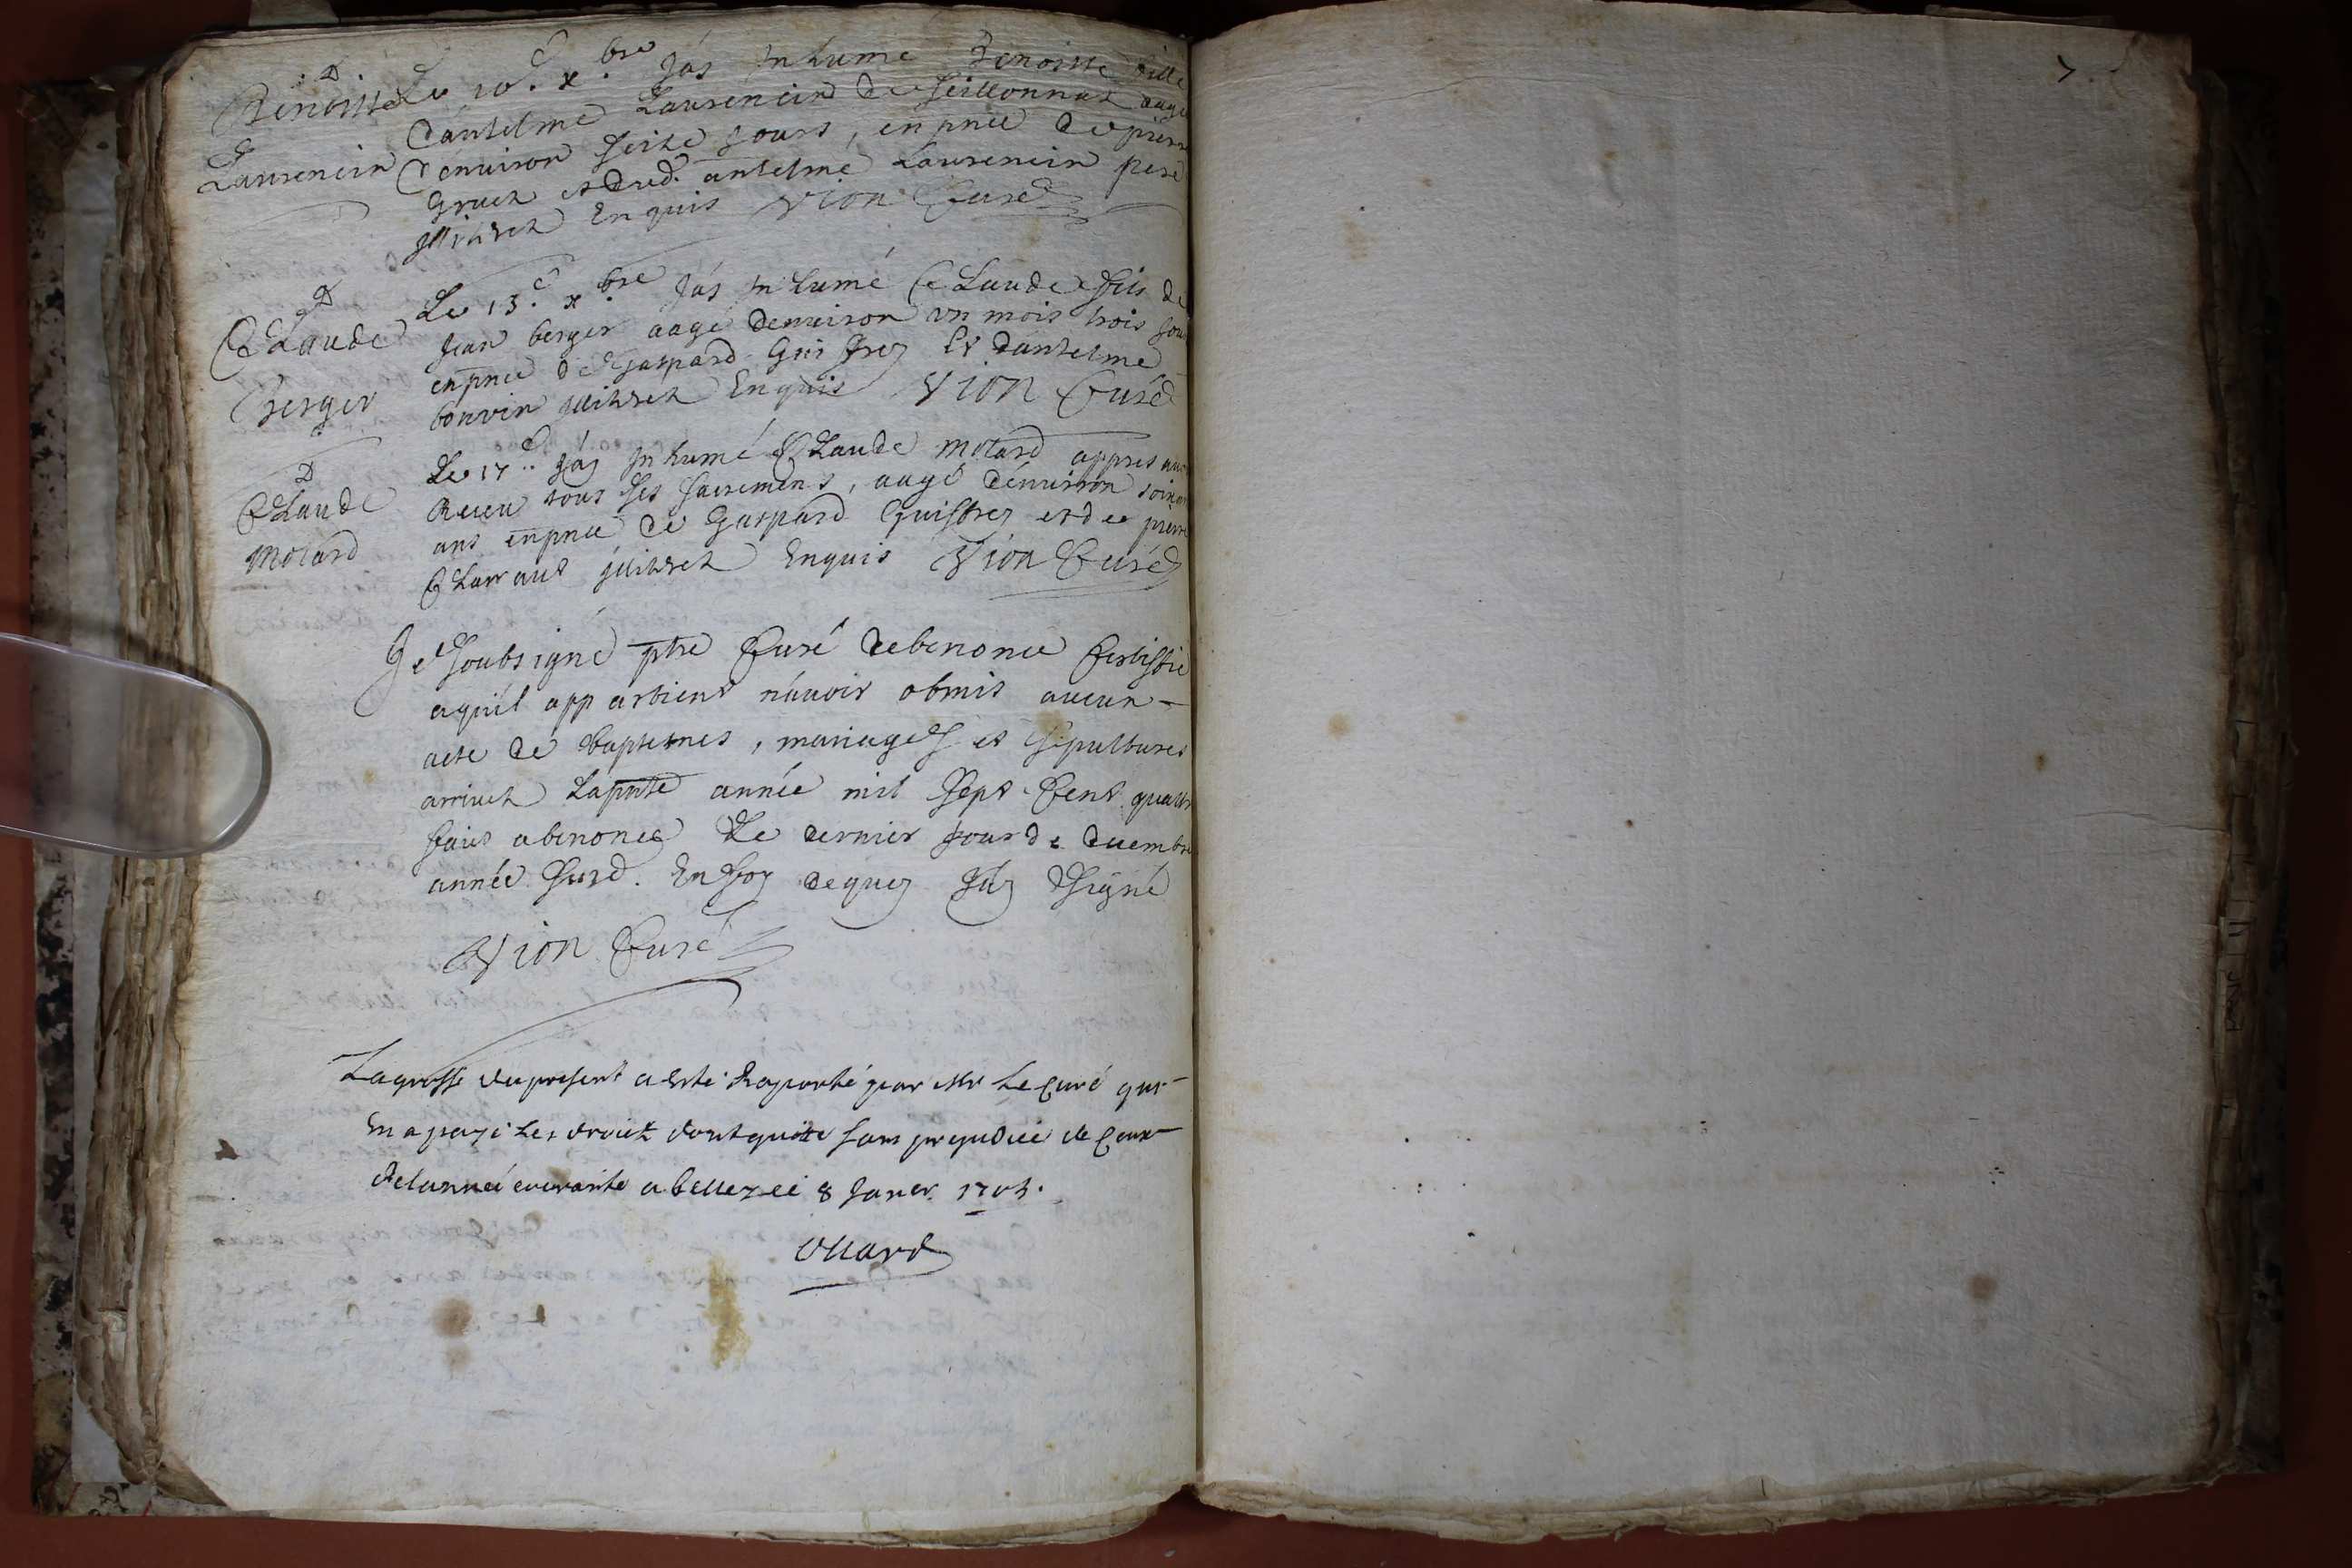 D
Benoiste
Laurencin
Le 10.e x.bre Jás Inhumé Benoiste fille
dantelme Laurencin de Seillonnas aagé
denuiron seize jours, enpnce de pierre
Gruez et dud. antelme Laurencin pere
jllitrez Enquis Vion Curé
D
Claude
Berger
Le 13.e x.bre Jás Inhumé Claude fils de
Jean berger aagé denuiron vn mois trois jour
enpnce de Gaspard Guiffrey Et dantelme
bonvin jllitrez Enquis Vion Curé
D
Claude
Motard
Le 17.e Jáy Inhumé Claude Motard appres auoir
Receu tous ses sacremens, aagé dénuiron
ans enpnce de Gaspard Guiffrey et de pierre
jllitrez Enquis Vion Curé
Je soubsigné ptre Curé debenonce Certiffie
aquil appartient náuoir obmis aucun
acte de baptemes, mariages et sepultures
arriuez Lapnte année mil sept Cent quattre
faict abenonce Le dernier jour de decembre
année susd. En foy dequoy Jáy signé
Vion Curé
Lagrosse du present a esté Raporté par Mr Le Curé qui
m a payé Les droict dont quitte sans prejudice de Ceux
delannée courante a belley ce 8 Janer. 1705.